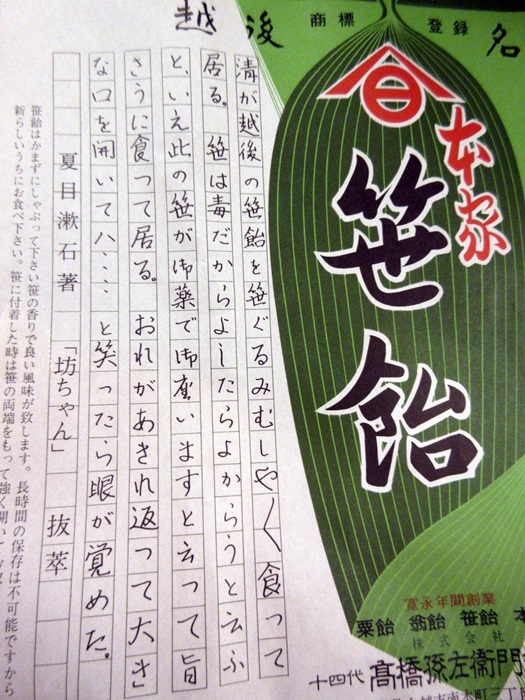 越後 名
商標 登録
合
本家
笹飴
寛永年間創業
粟飴 翁飴 笹飴 本
株式会社
十四代 髙橋孫左衛門
市南本町三丁
清が越後の笹飴を笹ぐるみむしや〱食って
居る。笹は毒だからよしたらよからうと云ふ
と、いえ此の笹が御薬で御座いますと云って旨
さうに食って居る。おれがあきれ返って大き
な口を開いてハ……と笑ったら眼が覚めた。
夏目漱石著「坊ちゃん」 抜萃
笹飴はかまずにしゃぶって下さい笹の香りで良い風味が致します。長時間の保存は不可能ですから
新らしいうちにお食べ下さい。笹に付着した時は笹の両端をもって強く開いて